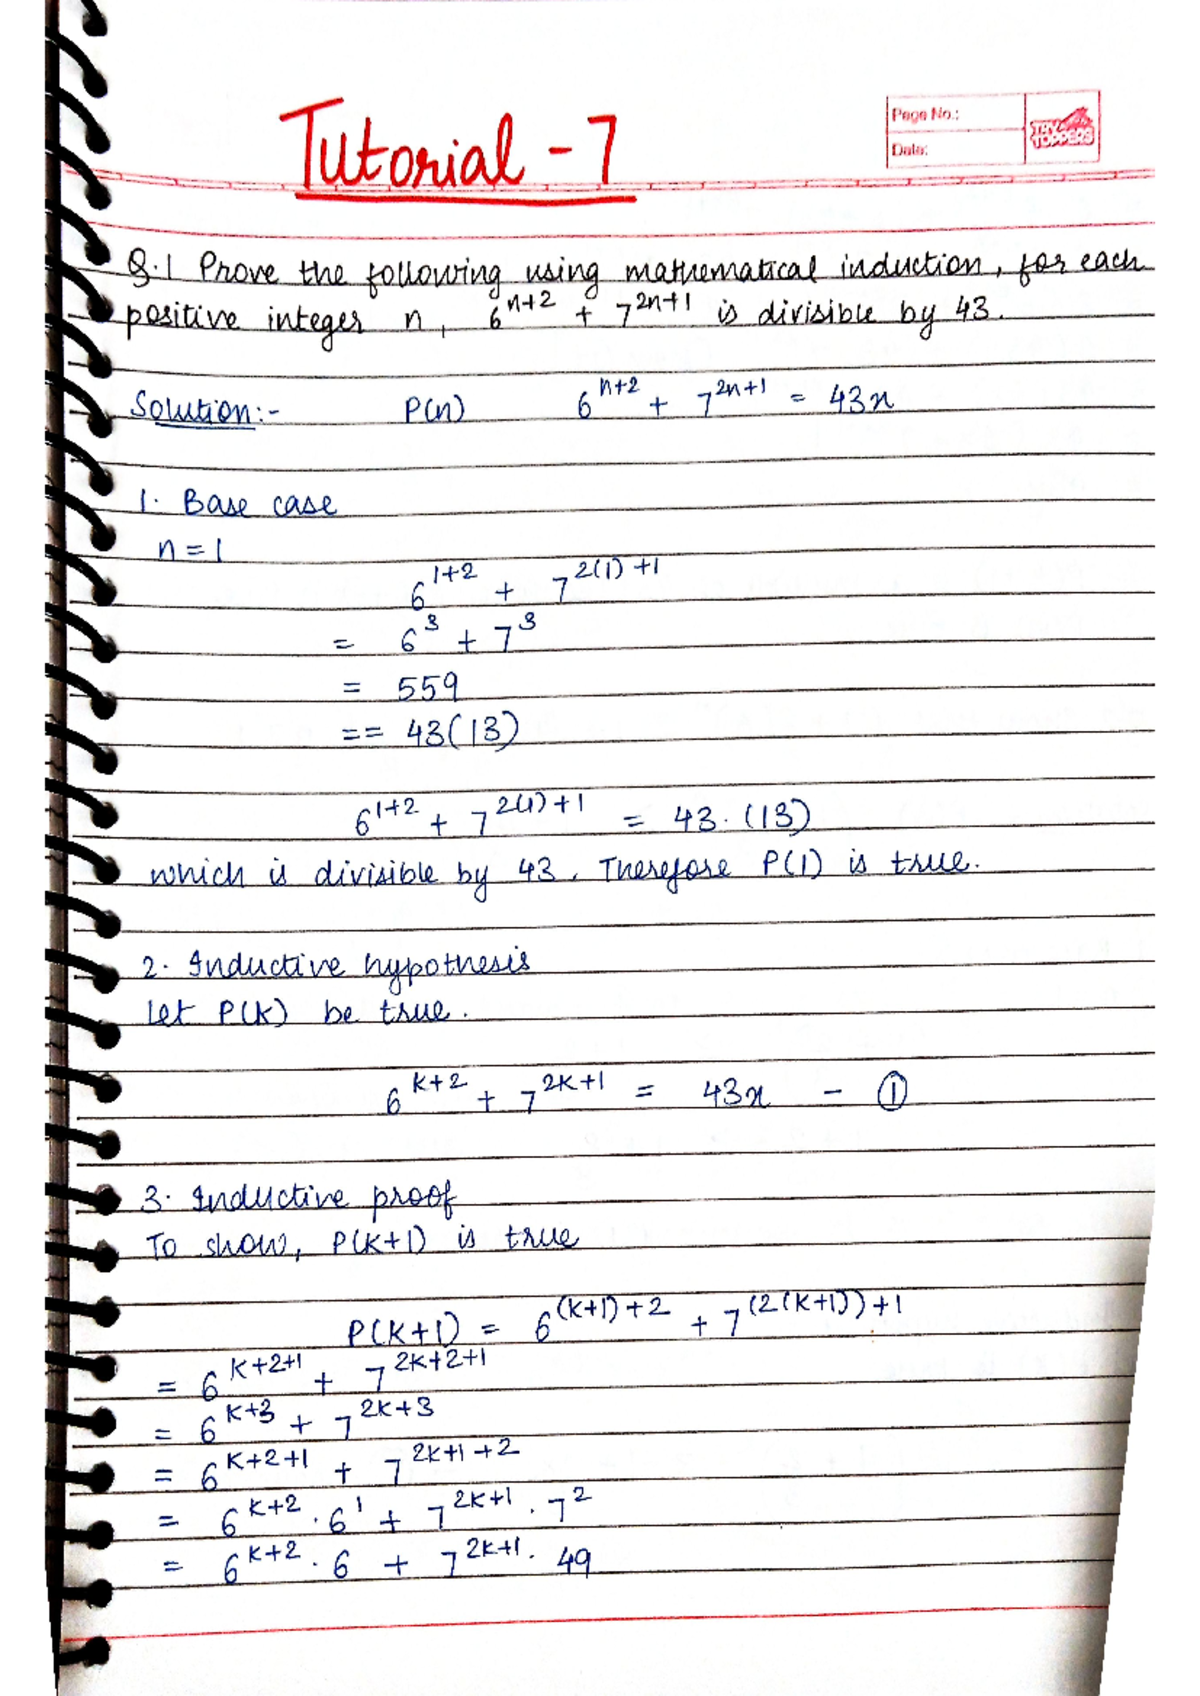 Tutorial - 7
Page No.:
Date:
TOPPERS
Q.1 Prove the following using mathematical induction, for each
positive integer n, 6^{n+2} + 7^{2n+1} is divisible by 43.
Solution:- P(n) 6^{n+2} + 7^{2n+1} = 43x
1. Base case
n = 1
6^{1+2} + 7^{2(1)+1}
= 6^3 + 7^3
= 559
== 43(13)
6^{1+2} + 7^{2(1)+1} = 43.(13)
which is divisible by 43. Therefore P(1) is true.
2. Inductive hypothesis
Let P(k) be true.
6^{k+2} + 7^{2k+1} = 43x - ①
3. Inductive proof
To show, P(k+1) is true
P(k+1) = 6^{(k+1)+2} + 7^{(2(k+1))+1}
= 6^{k+2+1} + 7^{2k+2+1}
= 6^{k+3} + 7^{2k+3}
= 6^{k+2+1} + 7^{2k+1+2}
= 6^{k+2}.6^1 + 7^{2k+1}.7^2
= 6^{k+2}.6 + 7^{2k+1}.49